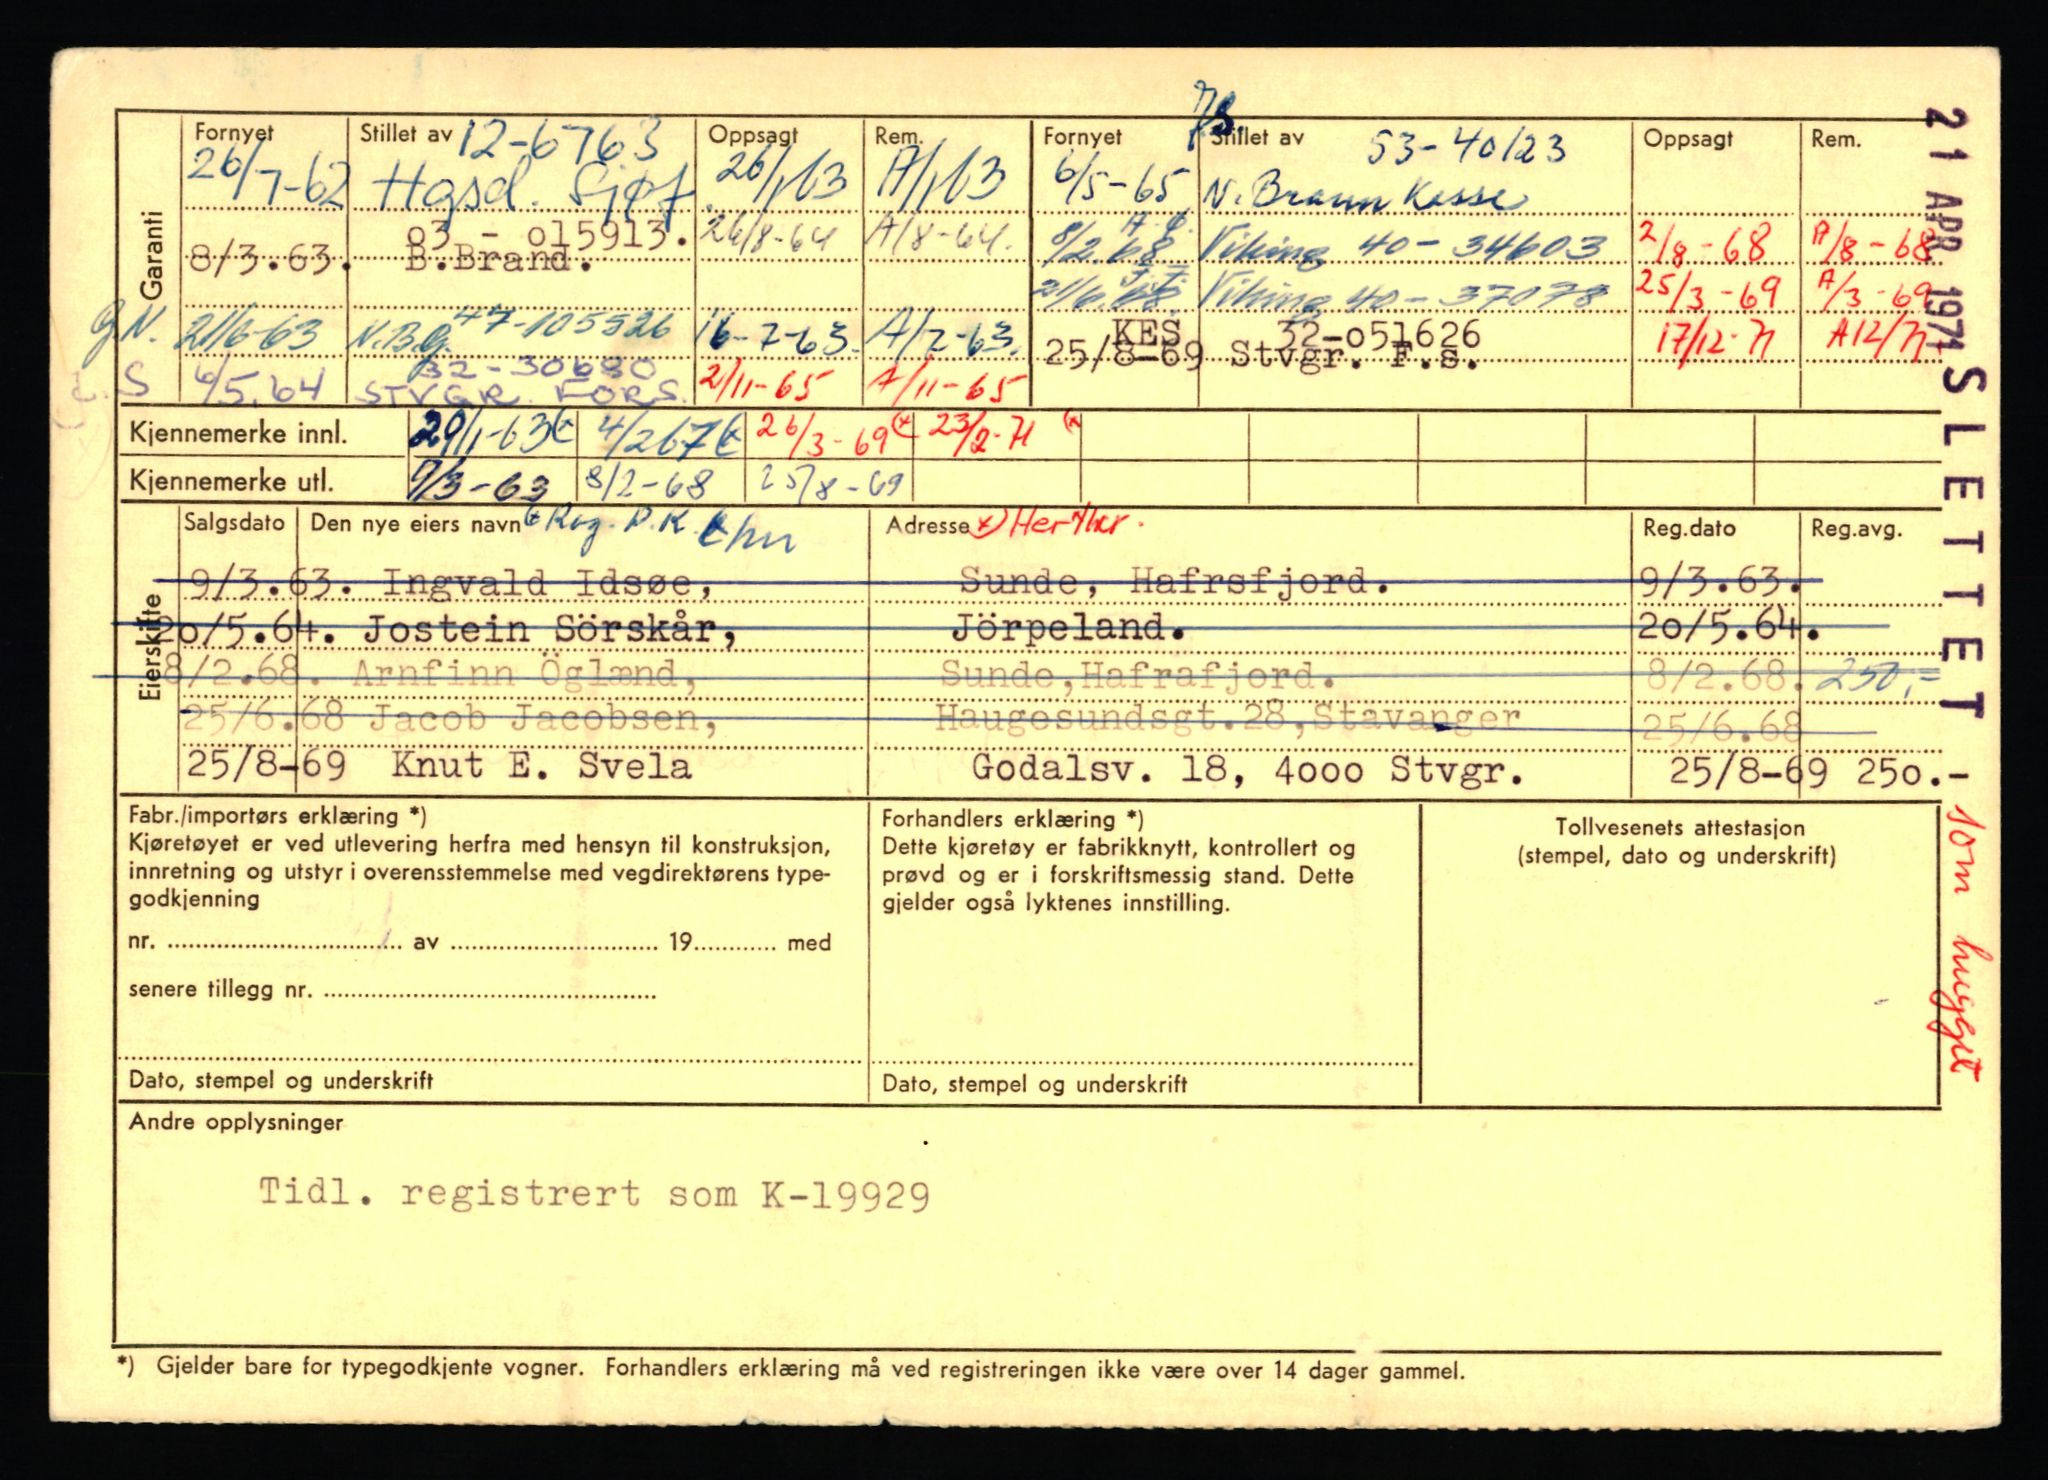 Garanti
Fornyet Stillet av 12-6763 Oppsagt Rem.
26/7-62 Hgsd. Sjøf. 26/1 63 A/1 63
o3 - o15913. 26/8-64 A/8-64.
8/3.63. B.Brand.
G.N. 21/6-63 N.B.G. 47-105526 16-7-63. A/7-63.
S 6/5.64 32-30680 2/11-65 A/11-65
STVGR. FORS.
Fornyet Stillet av 53-40123 Oppsagt Rem.
6/5-65 N. Brann Kasse
8/2.68 Viking 40-34603 2/8-68 A/8-68
21/6.68. Viking 40-37078 25/3-69 A/3-69
KES 32-o51626 17/12-71 A12/71
25/8-69 Stvgr. F.s.
Kjennemerke innl. 29/1-63 4/2 67 26/3-69 23/2-71
Kjennemerke utl. 9/3-63 8/2-68 25/8-69
Eierskifte
Salgsdato Den nye eiers navn Rog. P.K. Adresse Reg.dato Reg.avg.
9/3.63. Ingvald Idsøe, Sunde, Hafrsfjord. 9/3.63.
20/5.64. Jostein Sörskår, Jörpeland. 20/5.64.
8/2.68. Arnfinn Öglænd, Sunde,Hafrafjord. 8/2.68. 250,=
25/6.68 Jacob Jacobsen, Haugesundsgt.28,Stavanger 25/6.68
25/8-69 Knut E. Svela Godalsv. 18, 4ooo Stvgr. 25/8-69 25o.-
Fabr./importørs erklæring *)
Kjøretøyet er ved utlevering herfra med hensyn til konstruksjon,
innretning og utstyr i overensstemmelse med vegdirektørens type-
godkjenning
nr. ........ av ........ 19........ med
senere tillegg nr. ........
Dato, stempel og underskrift
Forhandlers erklæring *)
Dette kjøretøy er fabrikknytt, kontrollert og
prøvd og er i forskriftsmessig stand. Dette
gjelder også lyktenes innstilling.
Dato, stempel og underskrift
Tollvesenets attestasjon
(stempel, dato og underskrift)
Andre opplysninger
Tidl. registrert som K-19929
*) Gjelder bare for typegodkjente vogner. Forhandlers erklæring må ved registreringen ikke være over 14 dager gammel.
21 APR 1974 SLETTET som hugget